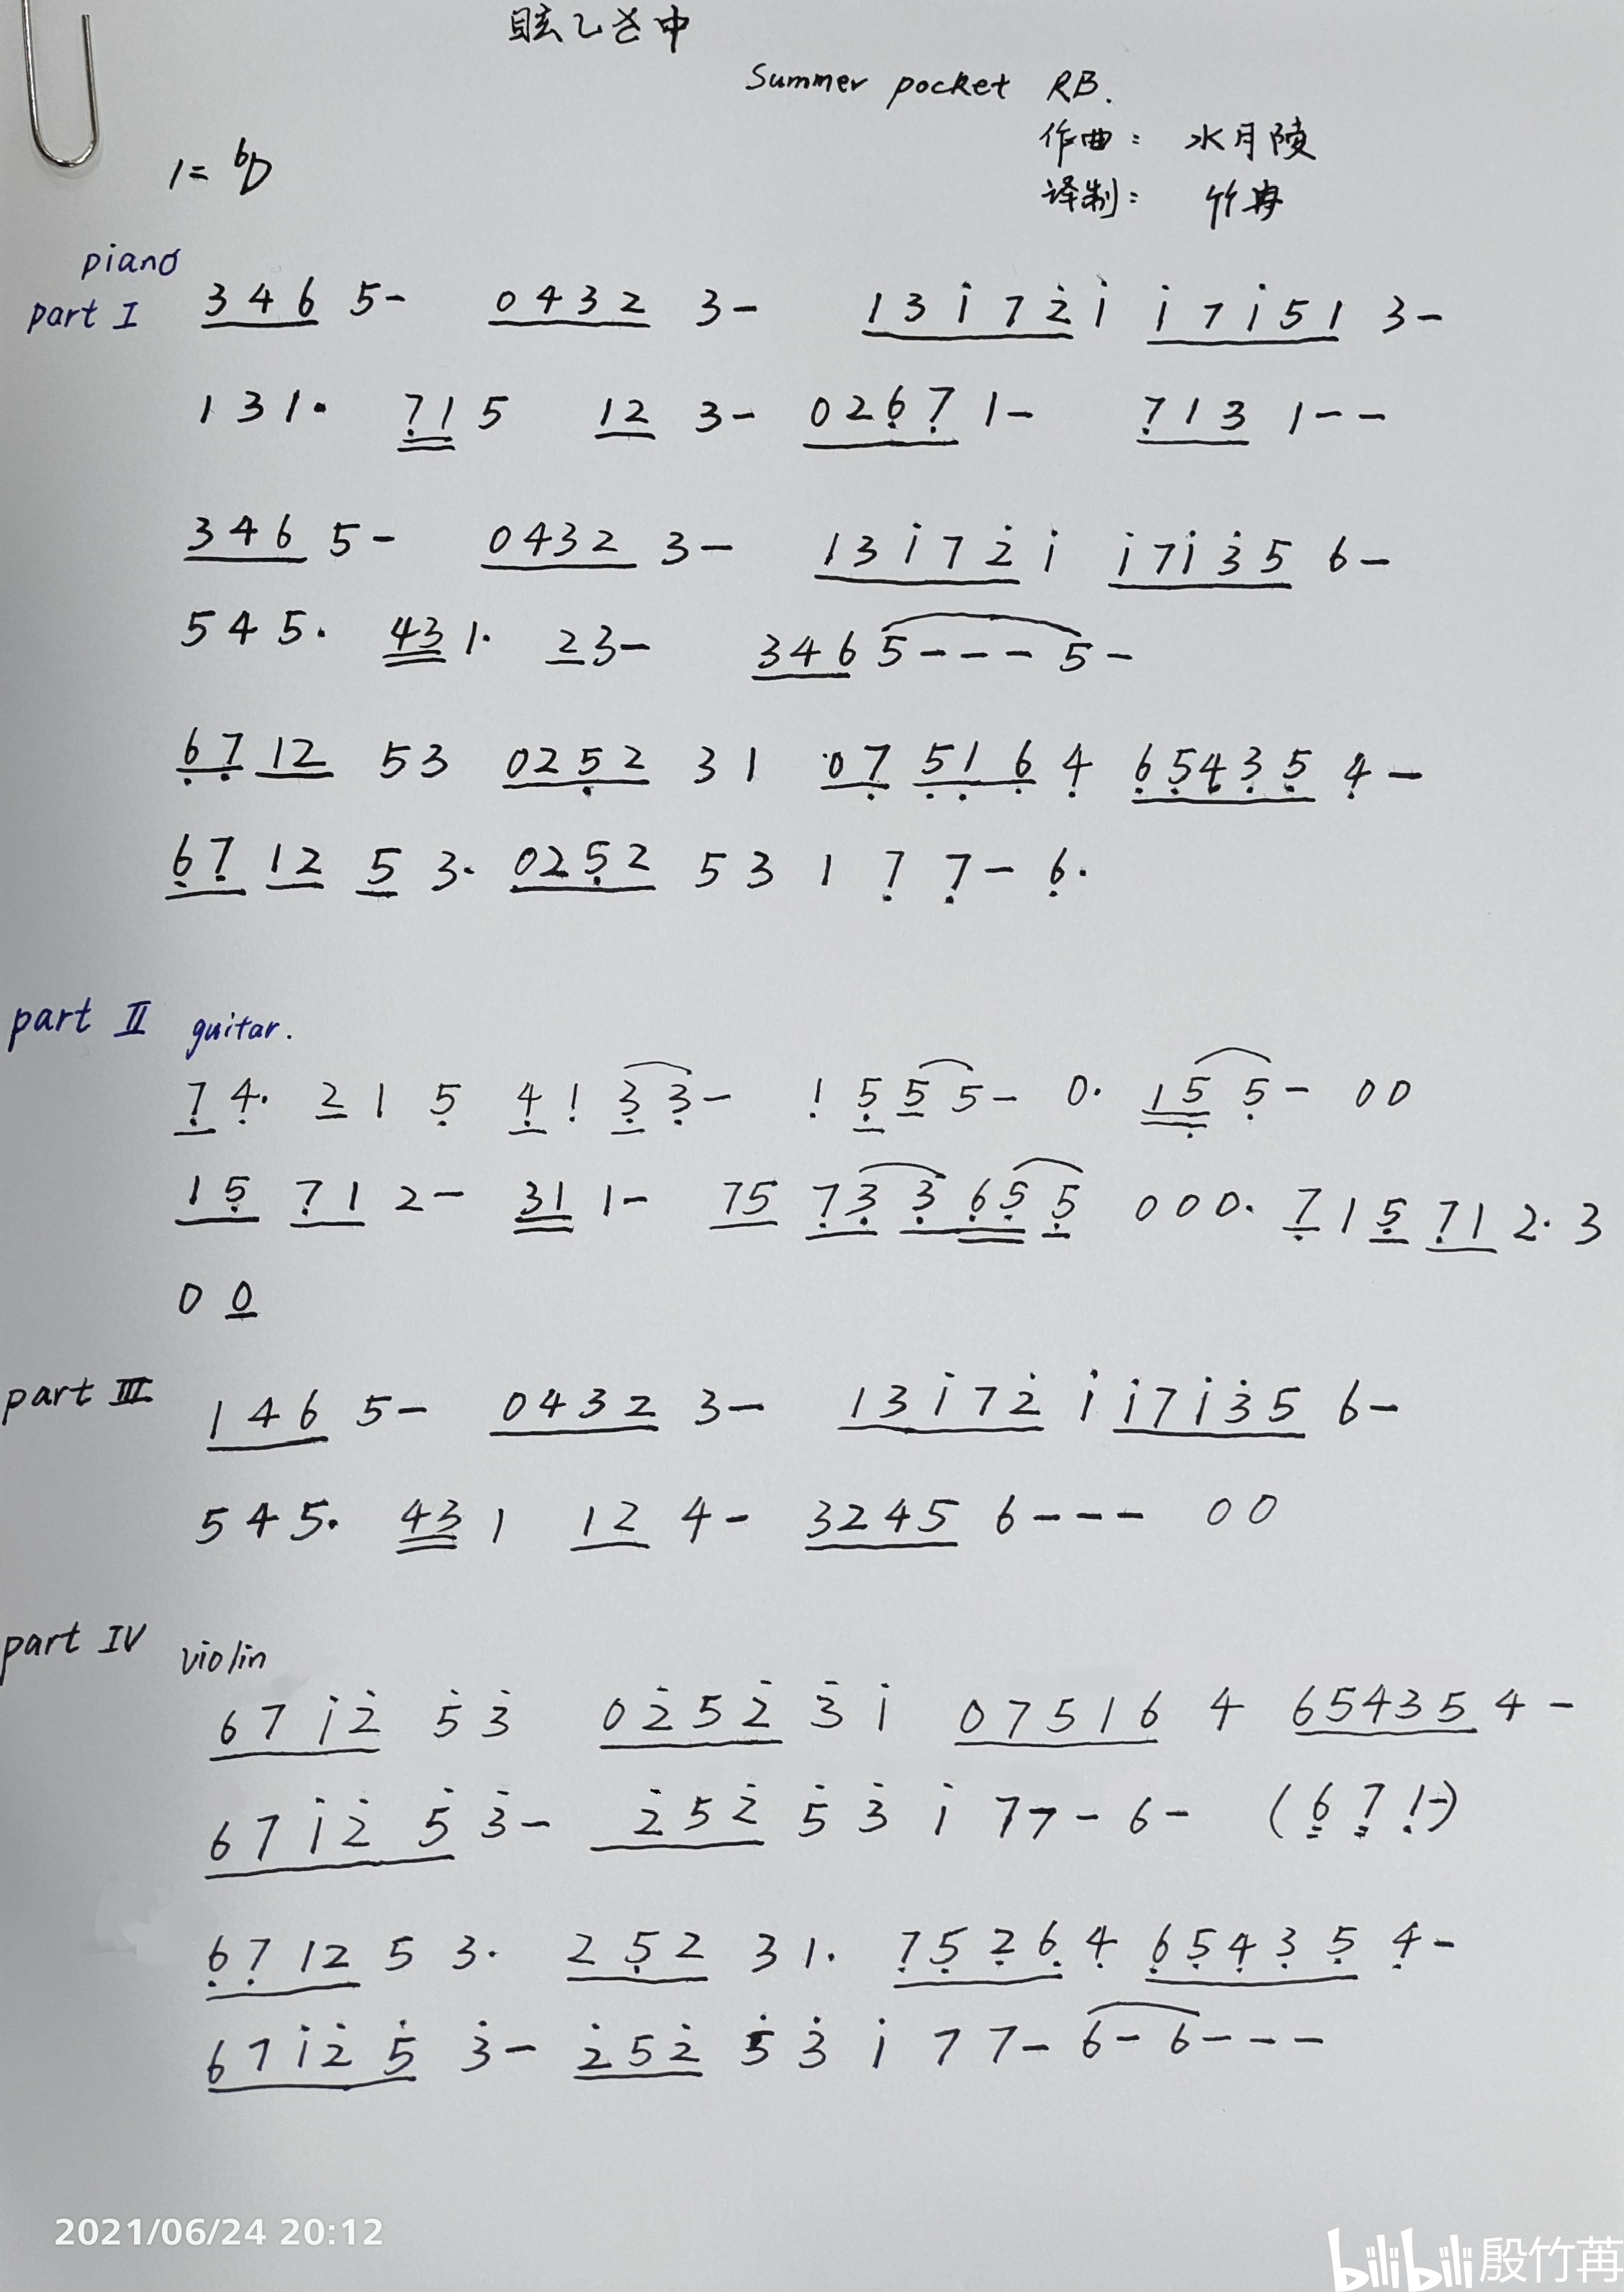 眩しさの中
Summer pocket RB.
作曲: 水月陵
译制: 竹苒
1= ♭D
piano
part I 3 4 6 5- 0 4 3 2 3- 1 3 i 7 2̇ i i 7 i 5 1 3-
1 3 1. 7̣ 1 5 1 2 3- 0 2 6̣ 7̣ 1- 7̣ 1 3 1--
3 4 6 5- 0 4 3 2 3- 1 3 i 7 2̇ i i 7 i 3̇ 5 6-
5 4 5. 4 3 1. 2 3- 3 4 6 5--- 5-
6̣ 7̣ 1 2 5 3 0 2 5̣ 2 3 1 0 7̣ 5̣ 1̣ 6̣ 4̣ 6̣ 5̣ 4̣ 3̣ 5̣ 4̣-
6̣ 7̣ 1 2 5 3. 0 2 5̣ 2 5 3 1 7̣ 7̣- 6̣.
part II guitar.
7̣ 4̣. 2 1 5̣ 4̣ 1̣ 3̣ 3̣- 1̣ 5̣ 5 5- 0. 1 5̣ 5̣- 0 0
1 5̣ 7̣ 1 2- 3 1 1- 7 5 7̣ 3̣ 3̣ 6̣ 5̣ 5̣ 0 0 0. 7̣ 1 5̣ 7̣ 1 2. 3
0 0
part III 1 4 6 5- 0 4 3 2 3- 1 3 i 7 2̇ i i 7 i 3̇ 5 6-
5 4 5. 4 3 1 1 2 4- 3 2 4 5 6--- 0 0
part IV violin
6 7 i 2̇ 5̇ 3̇ 0 2̇ 5 2̇ 3̇ i 0 7 5 1 6 4 6 5 4 3 5 4-
6 7 i 2̇ 5̇ 3̇- 2̇ 5 2̇ 5̇ 3̇ i 7 7- 6- (6̣ 7̣ 1̣-)
6̣ 7̣ 1 2 5 3. 2 5̣ 2 3 1. 7̣ 5̣ 2̣ 6̣ 4̣ 6̣ 5̣ 4̣ 3̣ 5̣ 4̣-
6 7 i 2̇ 5̇ 3̇- 2̇ 5 2̇ 5̇ 3̇ i 7 7- 6- 6---
2021/06/24 20:12
bilibili 殷竹苒